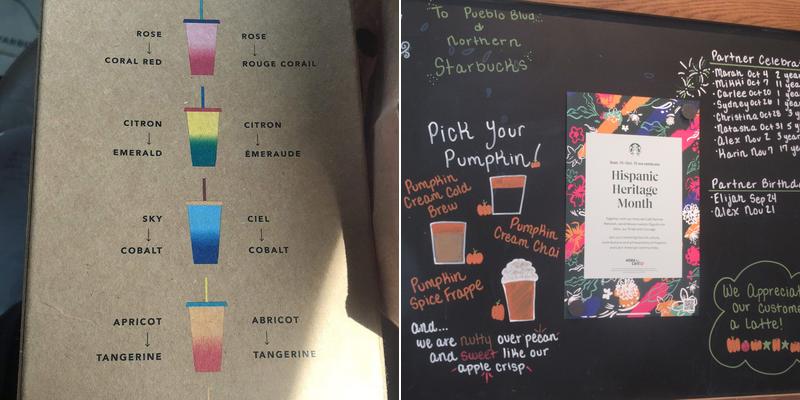 ROSE
↓
CORAL RED
ROSE
↓
ROUGE CORAIL
CITRON
↓
EMERALD
CITRON
↓
ÉMERAUDE
SKY
↓
COBALT
CIEL
↓
COBALT
APRICOT
↓
TANGERINE
ABRICOT
↓
TANGERINE
To Pueblo Blvd
&
Northern
Starbucks
Pick Your
Pumpkin!
Pumpkin
Cream Cold
Brew
Pumpkin
Cream Chai
Pumpkin
Spice Frappe
and...
we are nutty over pecan
and sweet like our
apple crisp
Hispanic
Heritage
Month
Partner Celebra
·Marah Oct 4 2 year
·Mikki Oct 7 11 yea
·Carlee Oct 20 1 yea
·Sydney Oct 28 1 year
·Christina Oct 28 3 y
·Natasha Oct 31 5 y
·Alex Nov 2 3 year
·Karin Nov 7 17 ye
Partner Birthda
·Elijah Sep 24
·Alex Nov 21
We Appreciat
our Custome
a Latte!